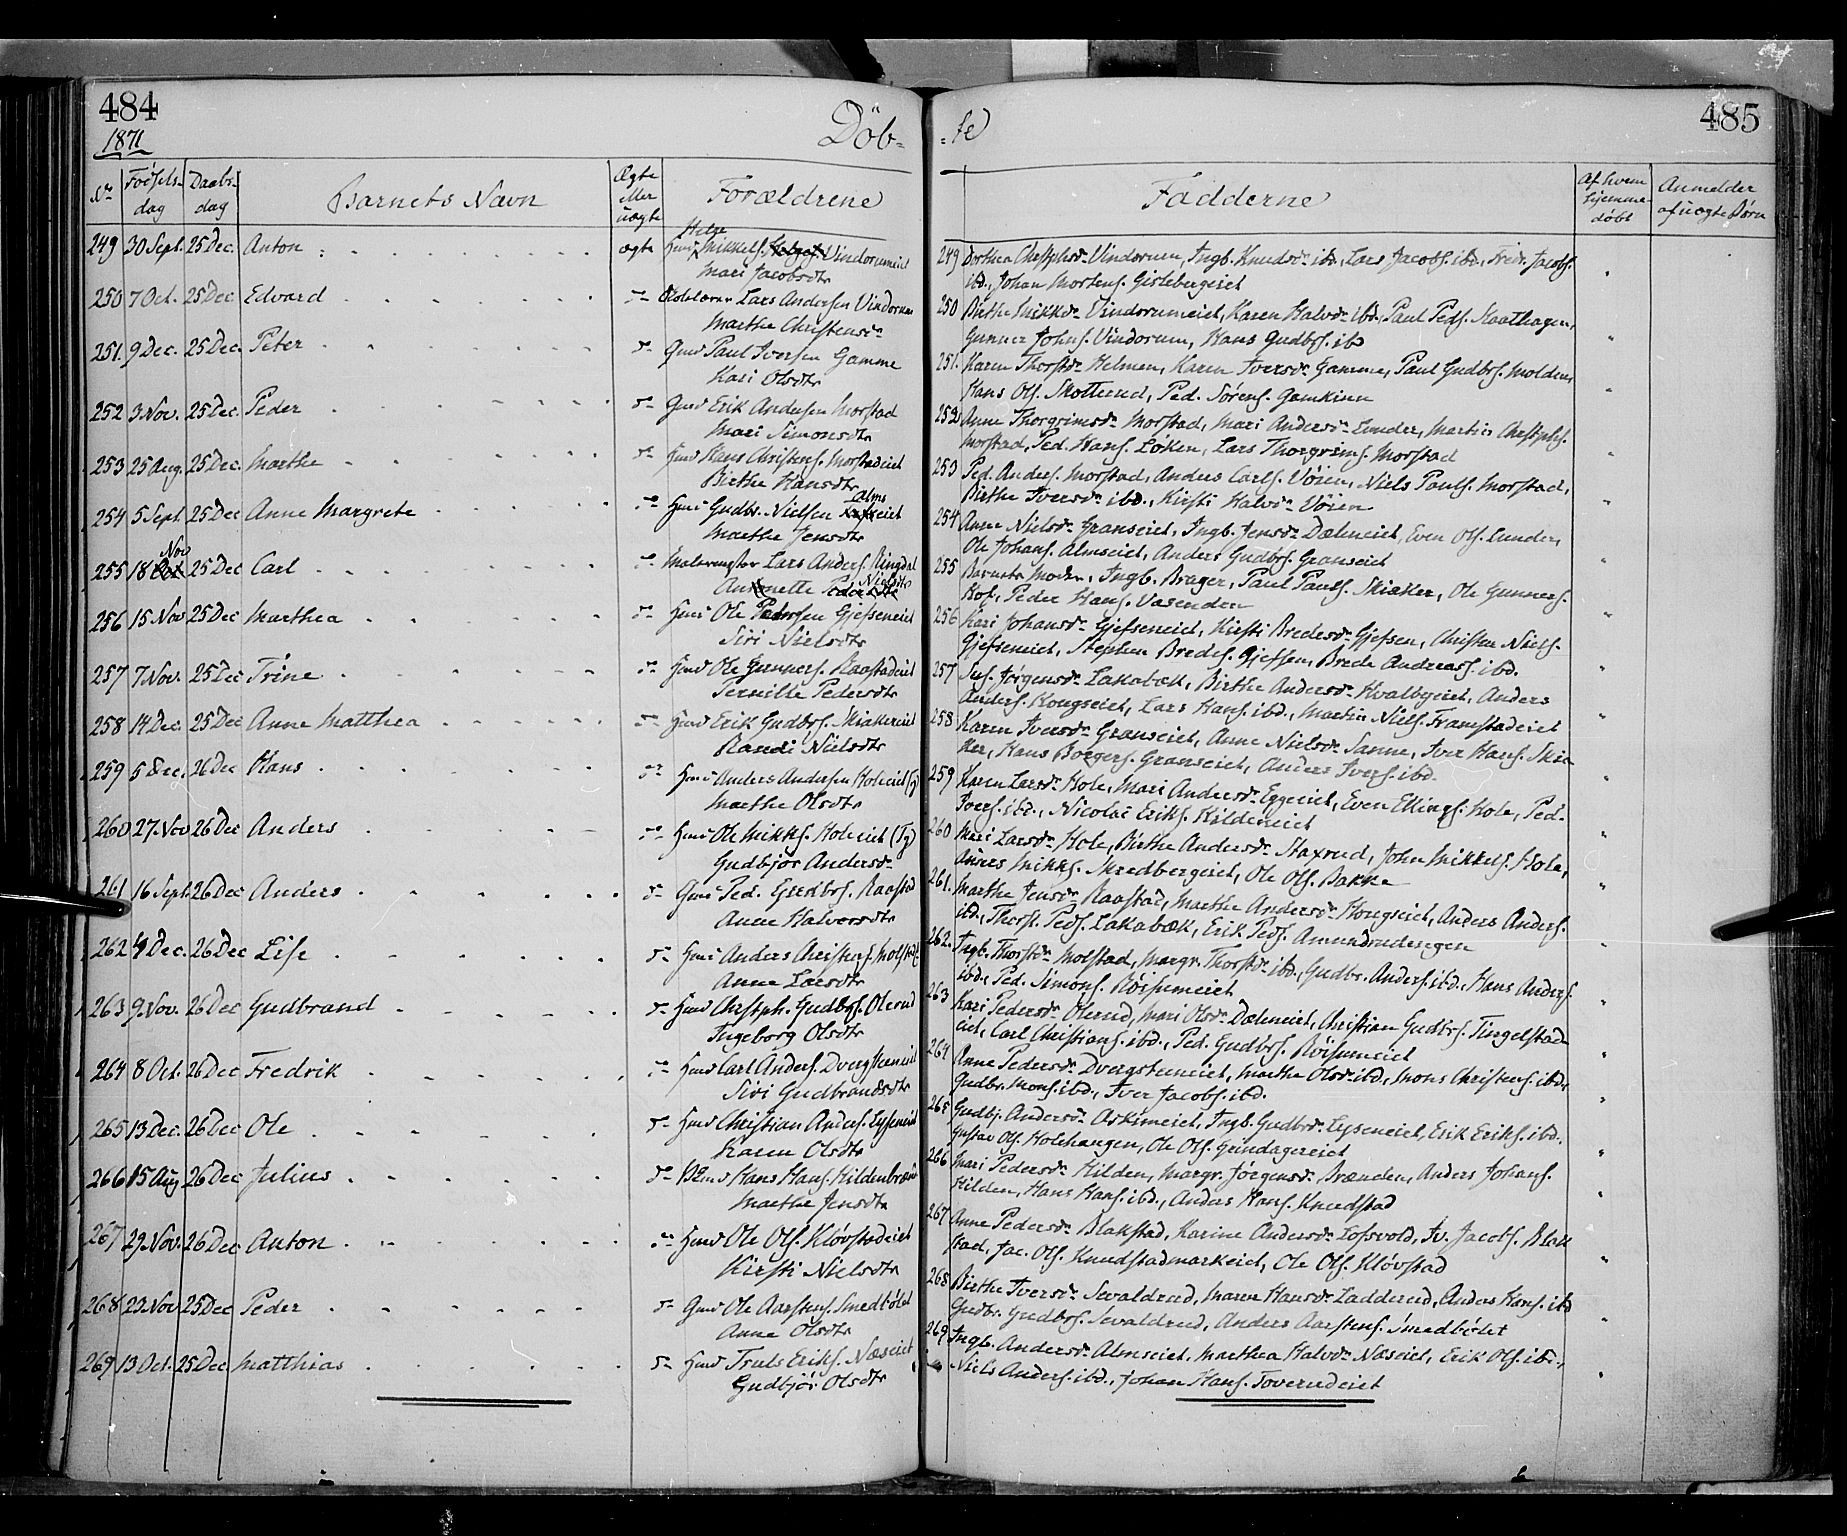 484
1871
Döb-
No
Fødsels-
dag
Daabs-
dag
Barnets Navn
Ægte
eller
uægte
Forældrene
249 30 Sept. 25 Dec. Anton ægte Helge
Mikkels. Vindorumeiet
Mari Jacobsdtr
250 7 Oct. 25 Dec. Edvard Lars Andersen Vindorum
Marthe Christensdr
251. 9 Dec. 25 Dec. Peter Gmd Paul Iversen Gamme
Kari Olsdtr
252 3 Nov. 25 Dec. Peder Gmd Erik Andersen Morstad
Mari Simonsdtr
253 25 Aug. 25 Dec. Marthe Hmd Hans Christens. Morstadeiet
Birthe Hansdtr
254 5 Sept. 25 Dec Anne Margrete Hmd Gudbr. Nielsen Almseiet
Marthe Jensdtr
255 18 Nov 25 Dec Carl Malermester Lars Anders. Ringdal
Antonette Nielsdtr
256 15 Nov 25 Dec Marthea Hmd Ole Pedersen Gjefseneiet
Siri Nielsdtr
257 7 Nov. 25 Dec Trine Hmd Ole Gunners. Raastadeiet
Pernille Pedersdtr
258 14 Dec. 25 Dec Anne Matthea Hmd Erik Gudbrs. Skiakereiet
Randi Nielsdtr
259 5 Dec. 26 Dec Hans Hmd Anders Andersen Holeeiet
Marthe Olsdtr
260 27. Nov 26 Dec Anders Hmd Ole Mikkels. Holeeiet
Gudbjør Andersdr
261 16 Sept. 26 Dec Anders Gmd Ped. Gudbrs. Raastad
Anne Halvorsdtr
262 4 Dec. 26 Dec Lise Hmd Anders Christens. Molstad
Anne Larsdtr
263 9. Nov. 26 Dec Gudbrand Hmd Christph. Gudbrs. Olerud
Ingeborg Olsdtr
264 8 Oct. 26 Dec Fredrik Hmd Carl Anders. Dvergsteneiet
Siri Gudbrandsdtr
265 13 Dec. 26 Dec Ole Hmd Christian Anders. Lyseneiet
Karen Olsdtr
266 15 Aug 26 Dec Julius Hans Hans. Hildenbrænd
Marthe Jensdtr
267 29. Nov. 26 Dec Anton Hmd Ole Ols. Kløvstadeiet
Kirsti Nielsdtr
268 23. Nov 25 Dec Peder Gmd Ole Aarstens. Smedbølet
Anne Olsdtr
269 13 Oct. 25 Dec Matthias Hmd Truls Eriks. Næseiet
Gudbjør Olsdtr
485
-te
Fadderne
Af hvem
hjemme-
døbt
Anmelder
af uægte Børn
249 Dorthea Christphsdr Vindorum, Ingb. Knudsdr ibd., Lars Jacobs. ibd., Fredr. Jacobs.
ibd., Johan Mortens. Gislebergeiet
250 Birthe Mikksdr Vindorumeiet, Karen Halvdr ibd., Paul Peds. Kaathagen,
Gunner Johns. Vindorum, Hans Gudbrs. ibd
251. Karen Thorstdr Helmen, Karen Iversdr Gamme, Paul Gudbrs. Molden,
Hans Ols. Skotterud, Ped. Sørens. Gamkinn
252 Anne Thorgrimsdr Morstad, Mari Andersdr Lunder, Martin Christphs.
Morstad, Ped. Hans. Løken, Lars Thorgrims. Morstad
253 Ped. Anders. Morstad, Anders Carls. Vøien, Niels Pauls. Morstad,
Birthe Iversdr ibd., Kirsti Halvdr Vøien
254 Anne Nielsdr Granseiet, Ingb. Jensdr Dæleneiet, Even Ols. Lunder,
Ole Johans. Almseiet, Anders Gudbrs. Granseiet
255 Barnets Moder, Ingb. Brager, Paul Pauls. Skiaker, Ole Gunners.
Hof, Peder Hans. Vasenden
256 Kari Johansdr Gjefseneiet, Kirsti Bredesdr Gjefsen, Christen Niels.
Gjefseneiet, Stephen Bredes. Gjefsen, Brede Anderss. ibd.
257 Jørgensdr Lakabæk, Birthe Andersdr Kvalbyeiet, Anders
Anders. Kongseiet, Lars Hans. ibd., Martin Niels. Framstadeiet
258 Karen Iversdr Granseiet, Anne Nielsdr Sanne, Iver Hans. Skia
ker, Hans Borgers. Granseiet, Anders Ivers. ibd.
259 Karen Larsdr Hole, Mari Andersdr Eggeeiet, Even Ellings. Hole, Ped.
Ivers. ibd., Nicolai Eriks. Hildeneiet
260 Mari Larsdr Hole, Birthe Andersdr Staxrud, John Mikkels. Hole,
Anders Mikks. Skredbergeiet, Ole Ols. Bakke
261. Marthe Jensdr Raastad, Marthe Andersdr Kongseiet, Anders Anders.
ibd., Thorst. Peds. Lakabæk, Erik Peds. Amundrudengen
262. Ingb. Thorstdr Molstad, Margr. Thorstdr ibd., Gudbr. Anders. ibd., Hans Anders.
ibd., Ped. Simons. Røisumeiet
263 Kari Pedersdr Olerud, Mari Olsdr Dæleneiet, Christian Gudbrs. Tingelstad
eiet, Carl Christians. ibd., Ped. Gudbrs. Røisumeiet
264 Anne Pedersdr Dvergsteneiet, Marthe Olsdr ibd., Mons Christens. ibd.,
Gudbr. Mons. ibd., Iver Jacobs. ibd.
265 Gudbj. Andersdr Askimeiet, Ingb. Gudbrdr Lyseneiet, Erik Eriks. ibd.
Gustav Ols. Holehaugen, Ole Ols. Grindagereiet
266 Mari Pedersdr Hilden, Margr. Jørgensdr Brænden, Anders Johans.
Hilden, Hans Hans. ibd., Anders Hans. Knudstad
267 Anne Pedersdr Blakstad, Karine Andersdr Lofsvold, Iv. Jacobs. Blak
stad, Jac. Ols. Knudstadmarkeiet, Ole Ols. Kløvstad
268 Birthe Iversdr Sevaldrud, Maren Hansdr Ladderud, Anders Hans. ibd
Gudbr. Gudbrs. Sevaldrud, Anders Aarstens. Smedbølet
269 Ingb. Andersdr Almseiet, Marthea Halvdr Næseiet, Erik Ols. ibd.,
Niels Anders. ibd., Johan Hans. Toverudeiet